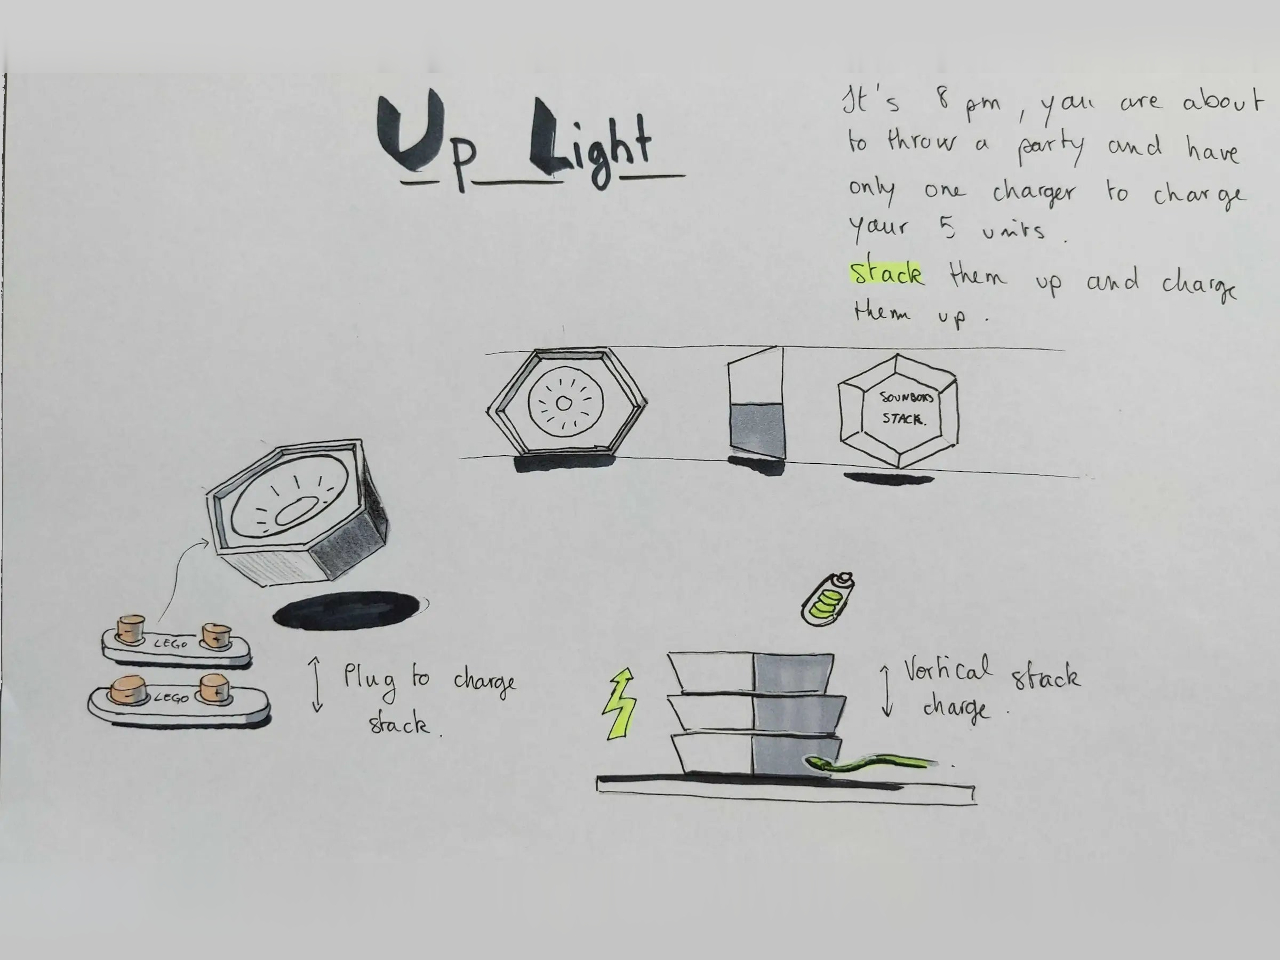 Up Light
It's 8 pm, you are about
to throw a party and have
only one charger to charge
your 5 units.
Stack them up and charge
them up.
SOUNBOKS
STACK.
- LEGO +
- LEGO +
Plug to charge
stack.
Vertical stack
charge.